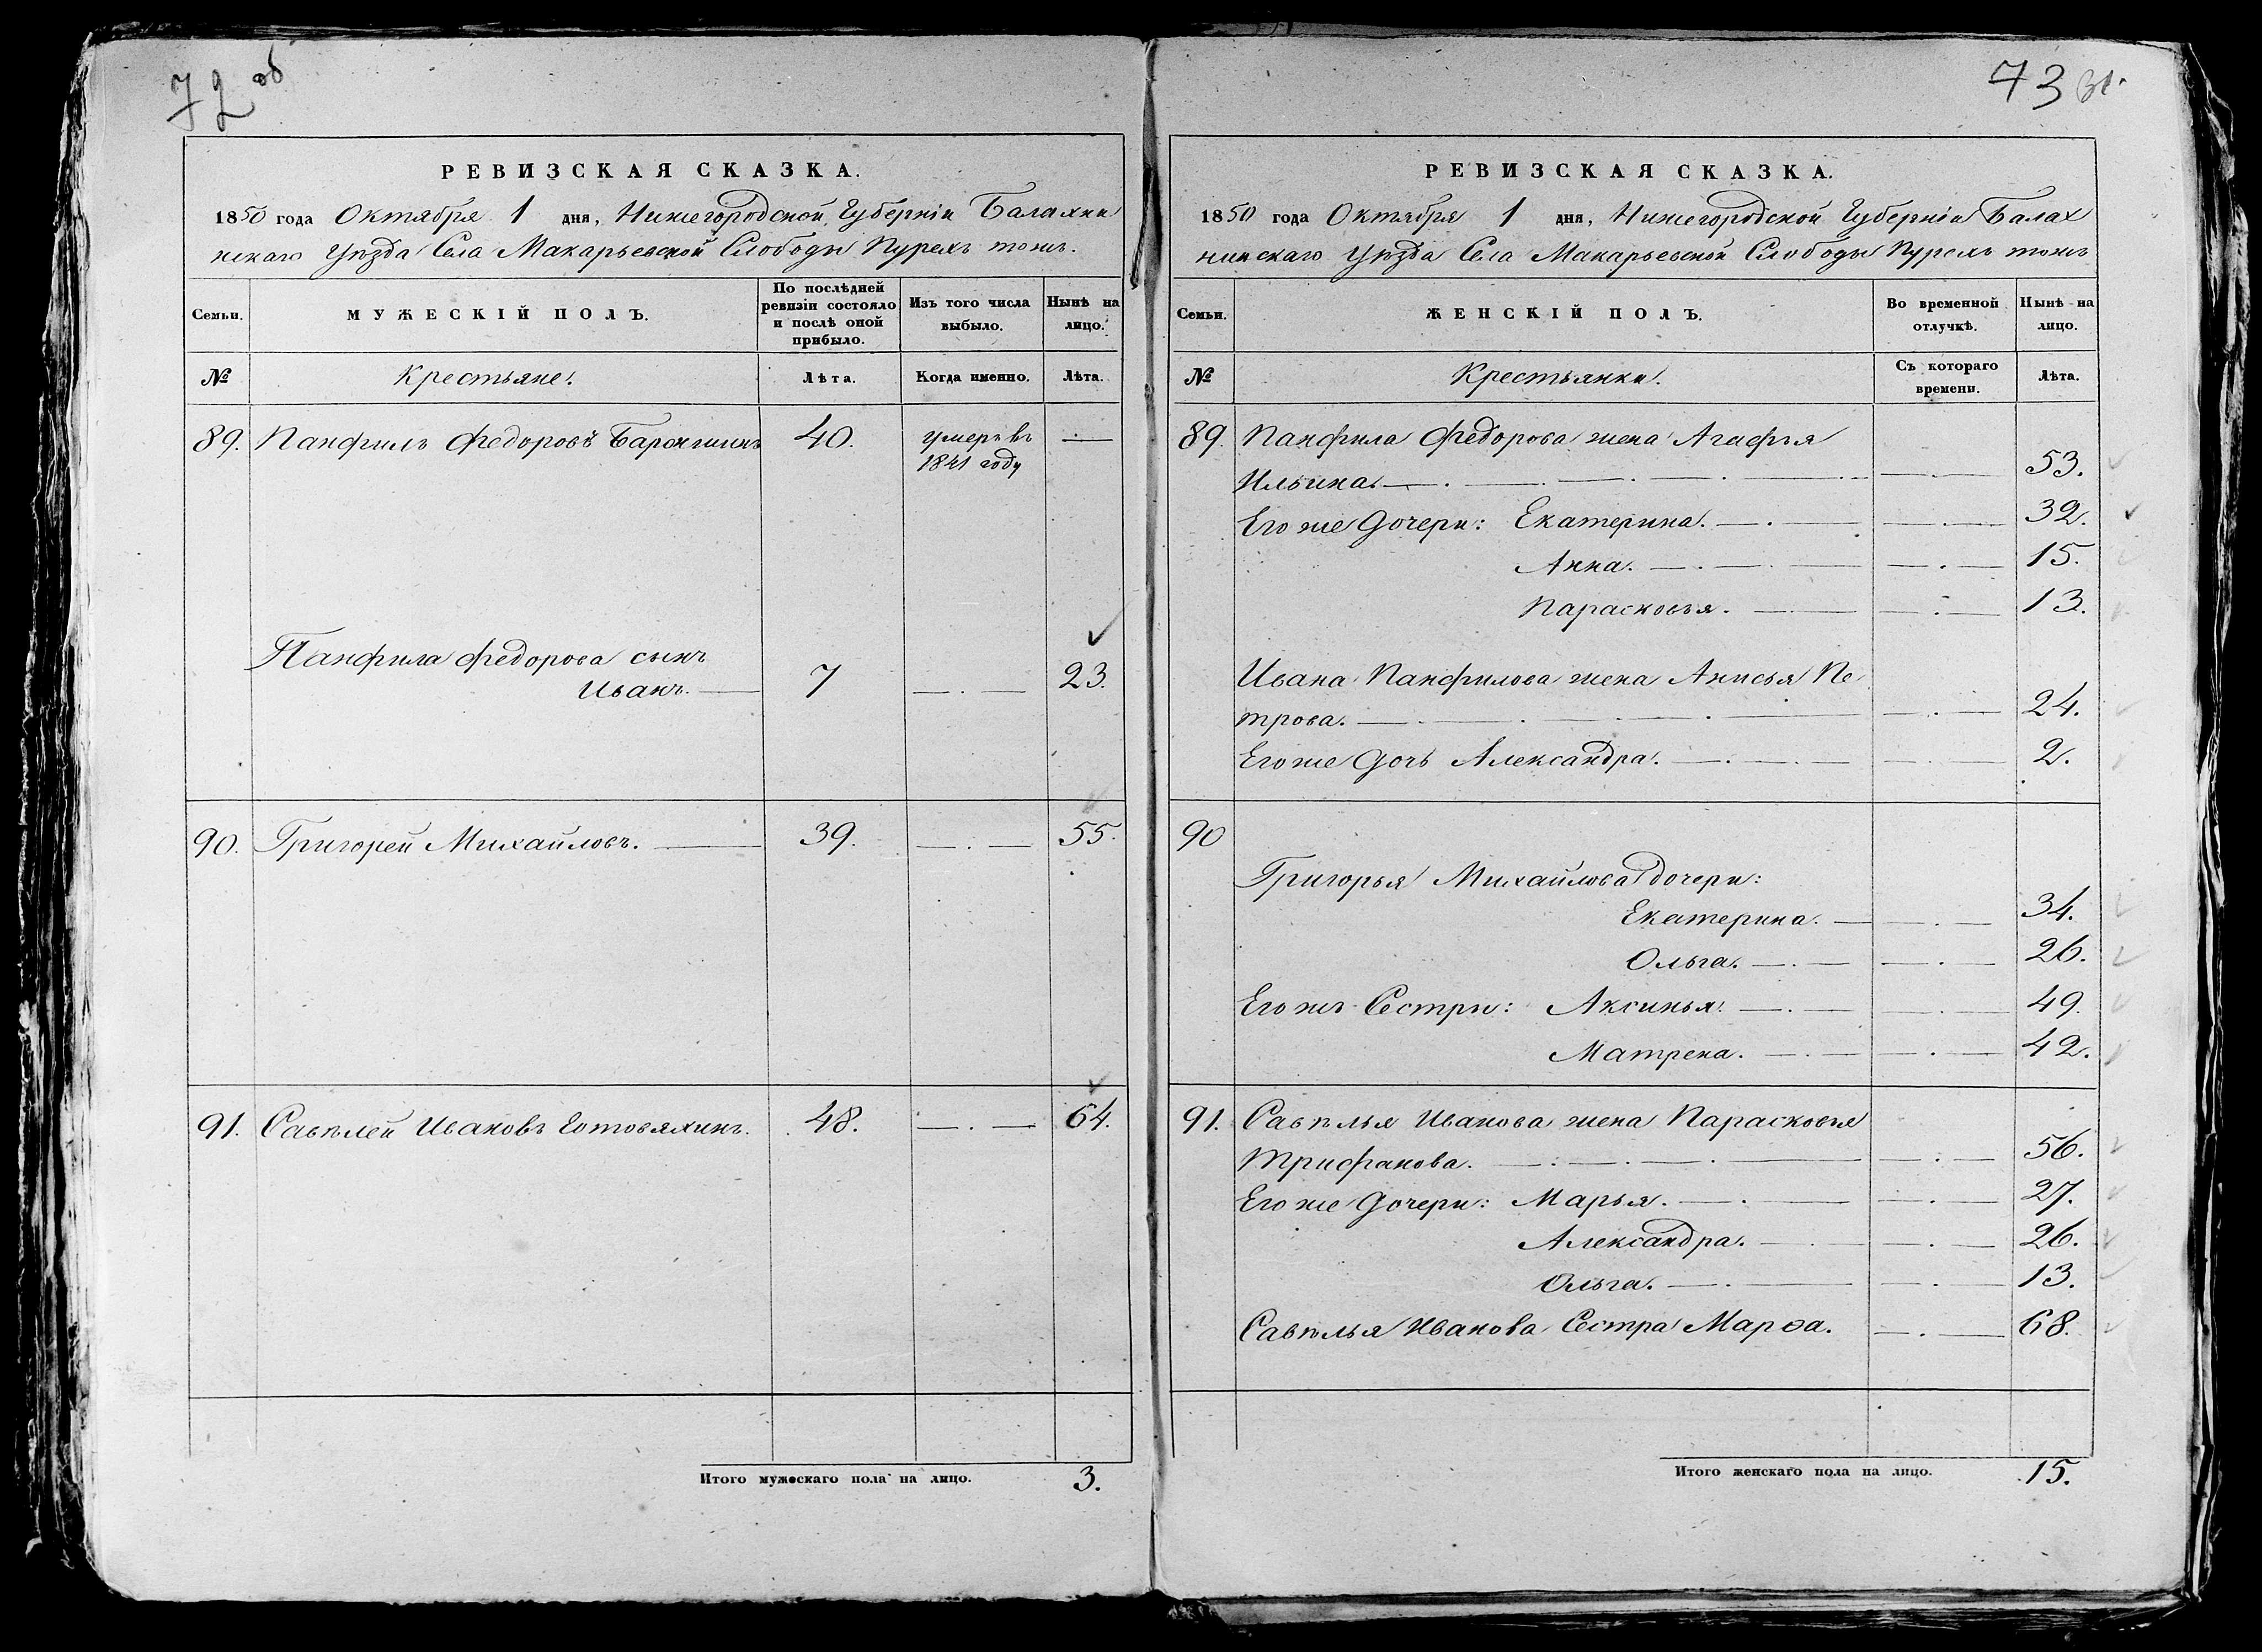 72 об
РЕВИЗСКАЯ СКАЗКА.
1850 года Октября 1 дня, Нижегородской Губерніи Балахни
нскаго Уѣзда Села Макарьевской Слободы Пурехъ тожъ.
Семьи. МУЖЕСКІЙ ПОЛЪ. По послѣдней ревизіи состояло и послѣ оной прибыло. Изъ того числа выбыло. Нынѣ на лицо.
№ Крестьяне. Лѣта. Когда именно. Лѣта.
89. Панфилъ Федоровъ 40. умеръ въ —
1841 году
Панфила Федорова сынъ
Иванъ. — 7 — . — 23.
90. Григорей Михайловъ. — 39. — . — 55.
91. Савѣлей Ивановъ Готовяхинъ. 48. — . — 64.
Итого мужескаго пола на лицо. 3.
73
РЕВИЗСКАЯ СКАЗКА.
1850 года Октября 1 дня, Нижегородской Губерніи Балах
нинскаго Уѣзда Села Макарьевской Слободы Пурехъ тожъ
Семьи. ЖЕНСКІЙ ПОЛЪ. Во временной отлучкѣ. Нынѣ на лицо.
№ Крестьянки. Съ котораго времени. Лѣта.
89. Панфила Федорова жена Агафья
Ильина. — . — 53.
Его же Дочери: Екатерина. — . — 32.
Анна. — . — 15.
Парасковья. — . — 13.
Ивана Панфилова жена Анисья Пе
трова. — . — 24.
Его же Дочь Александра. — . — 2.
90
Григорья Михайлова дочери:
Екатерина. — . — 34.
Ольга. — . — 26.
Его жъ Сестры: Аксинья. — . — 49.
Матрена. — . — 42.
91. Савѣлья Иванова жена Парасковья
Трифанова. — . — 56.
Его же Дочери: Марья. — . — 27.
Александра. — . — 26.
Ольга. — . — 13.
Савѣлья Иванова Сестра Марѳа. — . — 68.
Итого женскаго пола на лицо. 15.